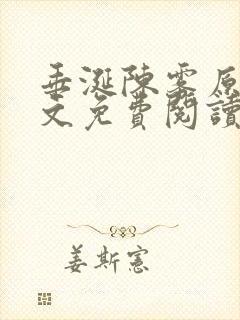 垂涎陳雾原
文免費閱讀
姜斯憲